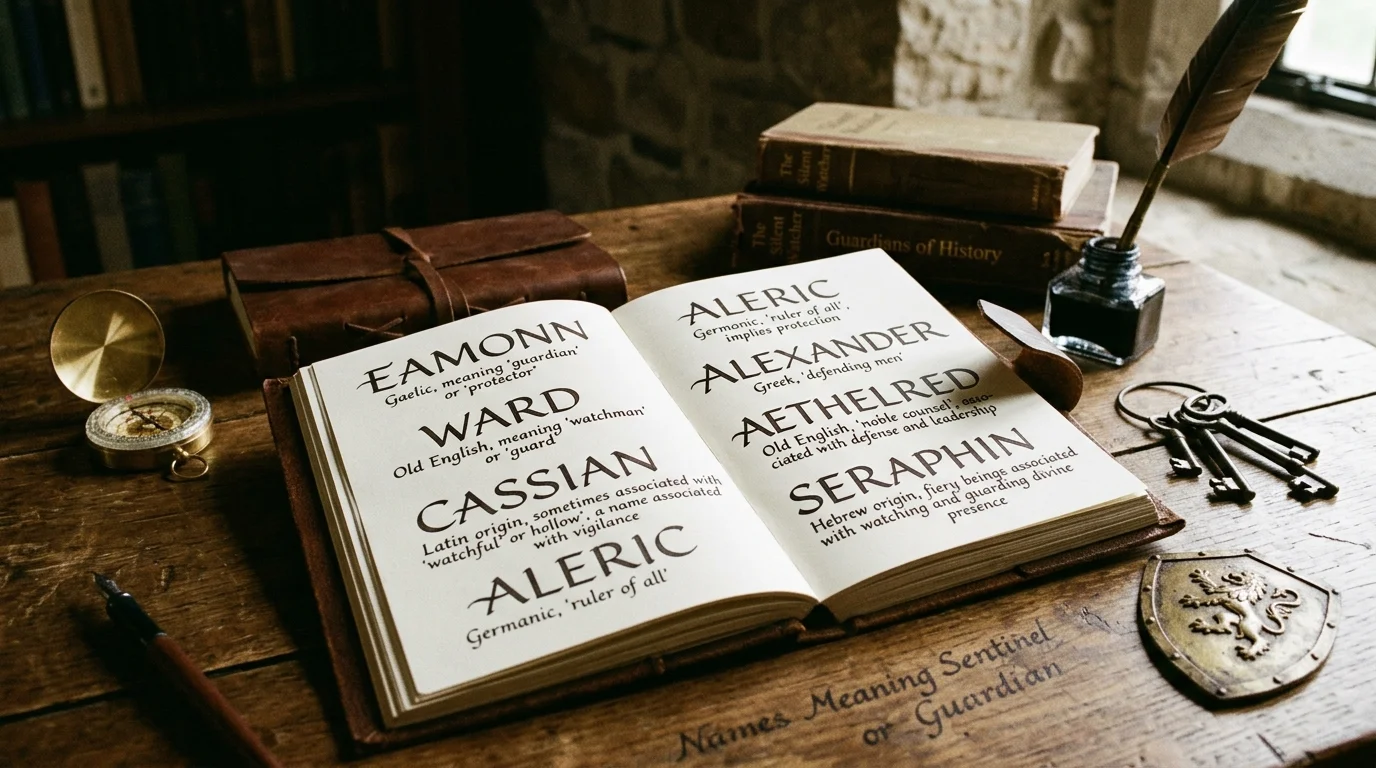 EAMONN
Gaelic, meaning 'guardian'
or 'protector'
WARD
Old English, meaning 'watchman'
or 'guard'
CASSIAN
Latin origin, sometimes associated with
'watchful' or hollow', a name associated
with vigilance
ALERIC
Germanic, 'ruler of all'
ALERIC
Germanic, 'ruler of all',
implies protection
ALEXANDER
Greek, 'defending men'
AETHELRED
Old English, 'noble counsel', asso-
ciated with defense and leadership
SERAPHIN
Hebrew origin, fiery beings associated
with watching and guarding divine
presence
The
Silent
Watcher
The
Silent
Watcher
Guardians of History
Names Meaning Sentinel
or Guardian